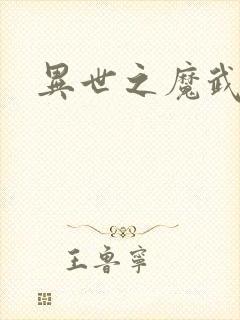 異世之魔武
王魯寧